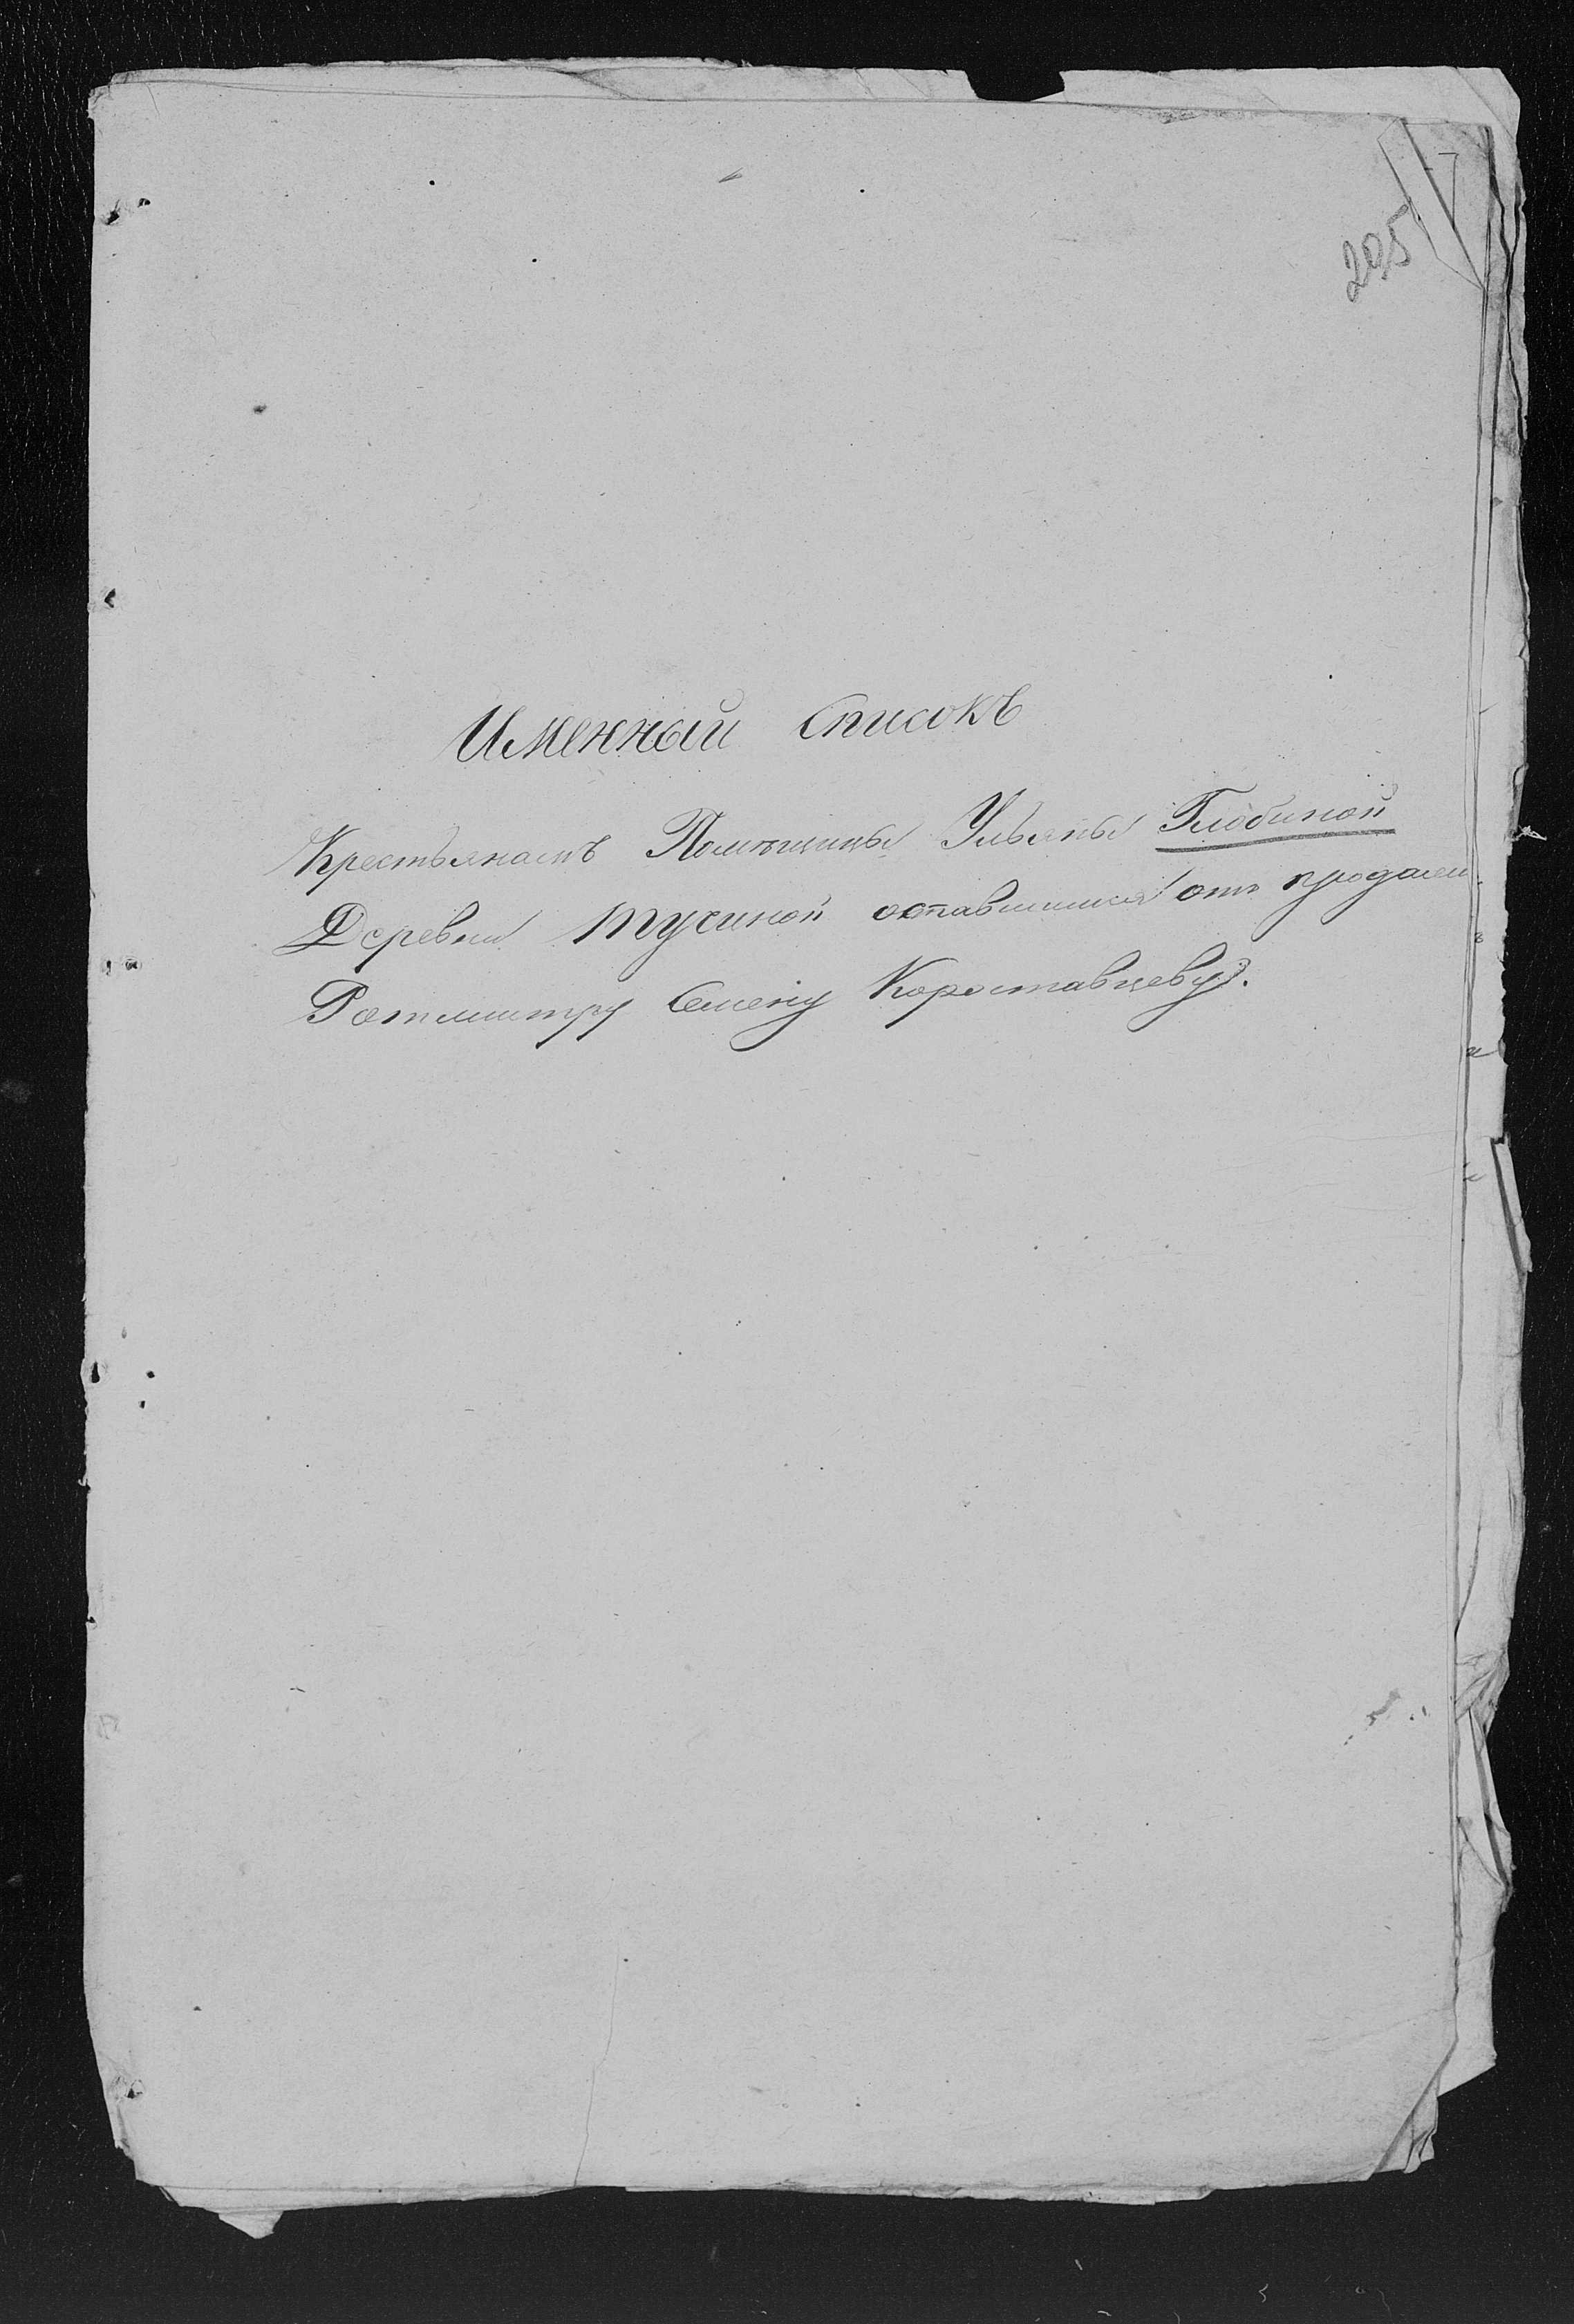 205
Именный Списокъ
Крестьянамъ Помѣщицы Ульяны Глобиной
Деревни Тучиной оставшимся отъ продажи
Ротмистру Семену Короставцеву.